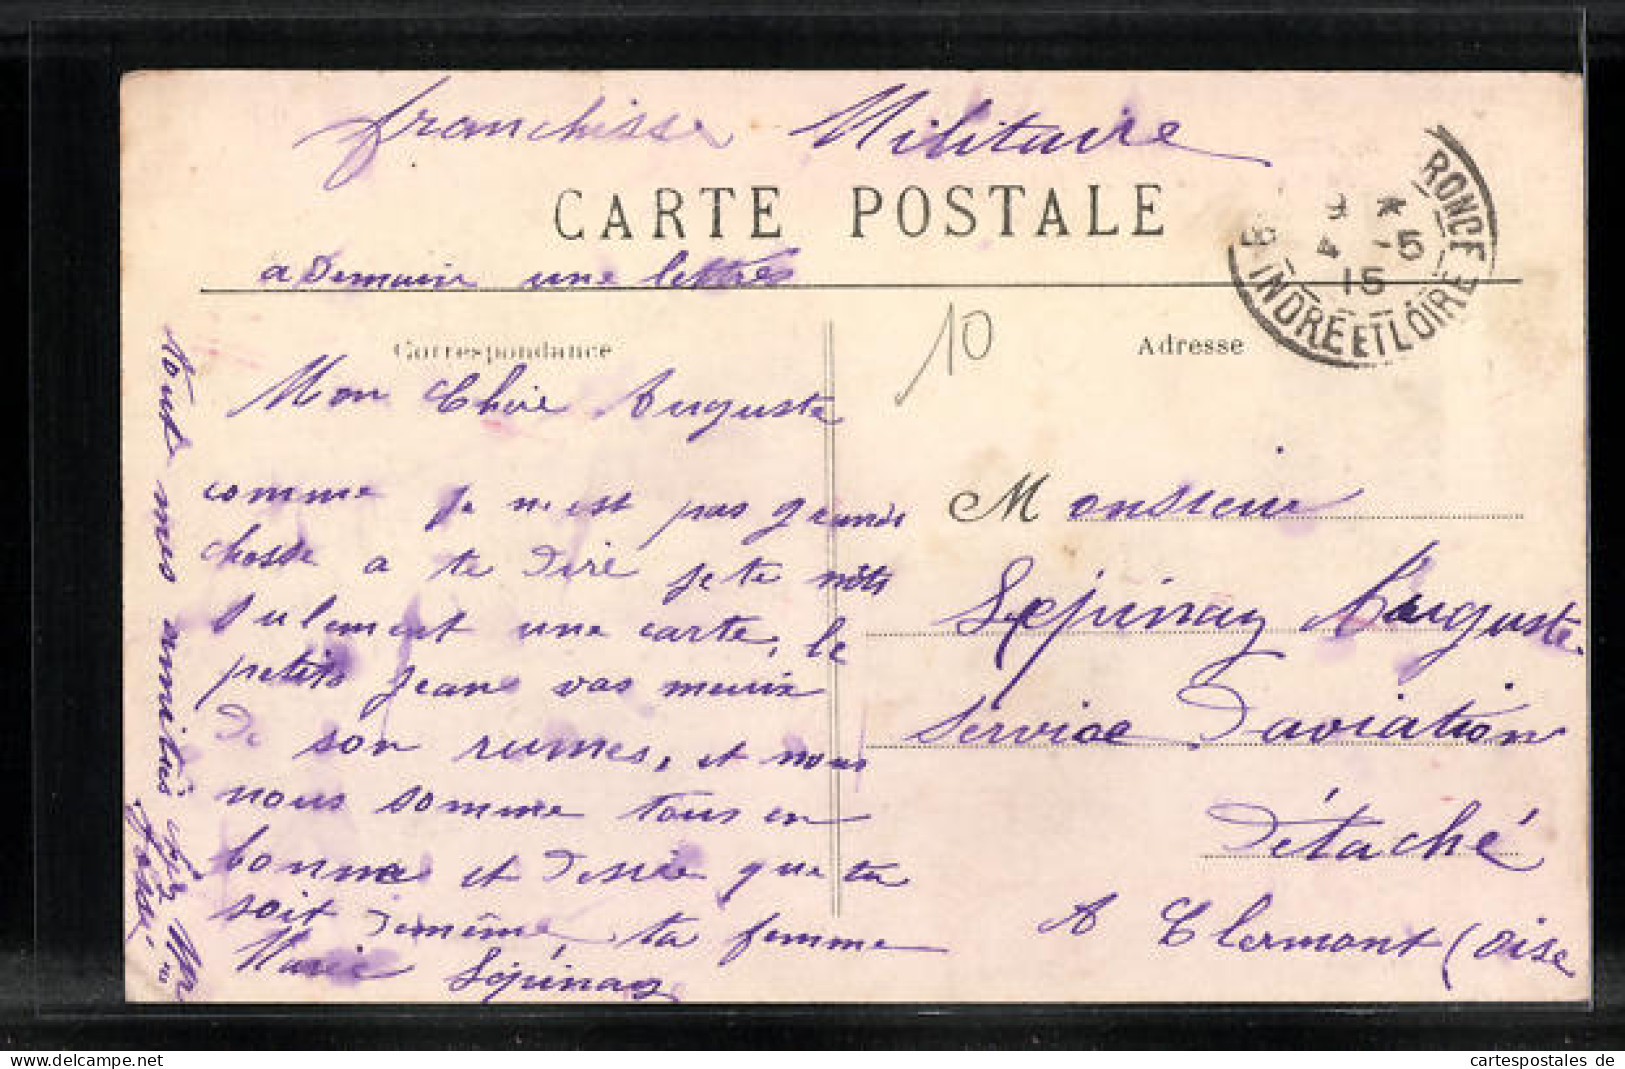 franchisse Militaire
CARTE POSTALE
RONCE
9 *
4 -5
15
INDRE ET LOIRE
a Demain une lettres
10
Correspondance
Adresse
Mon Chére Auguste
comme je n'est pas grands
chosse a te dire je te mêts
sulement une carte, le
petits jean vas mieux
De son rumes, et nous
nous somme tous en
bonne et Désire que tu
soit Demême ta femme
Marie Lépinay
tout mes amitiés chez Mr
Monsieur
Lépinay Auguste
Service D'aviation
Détaché
A Clermont (Oise
cartespostales de